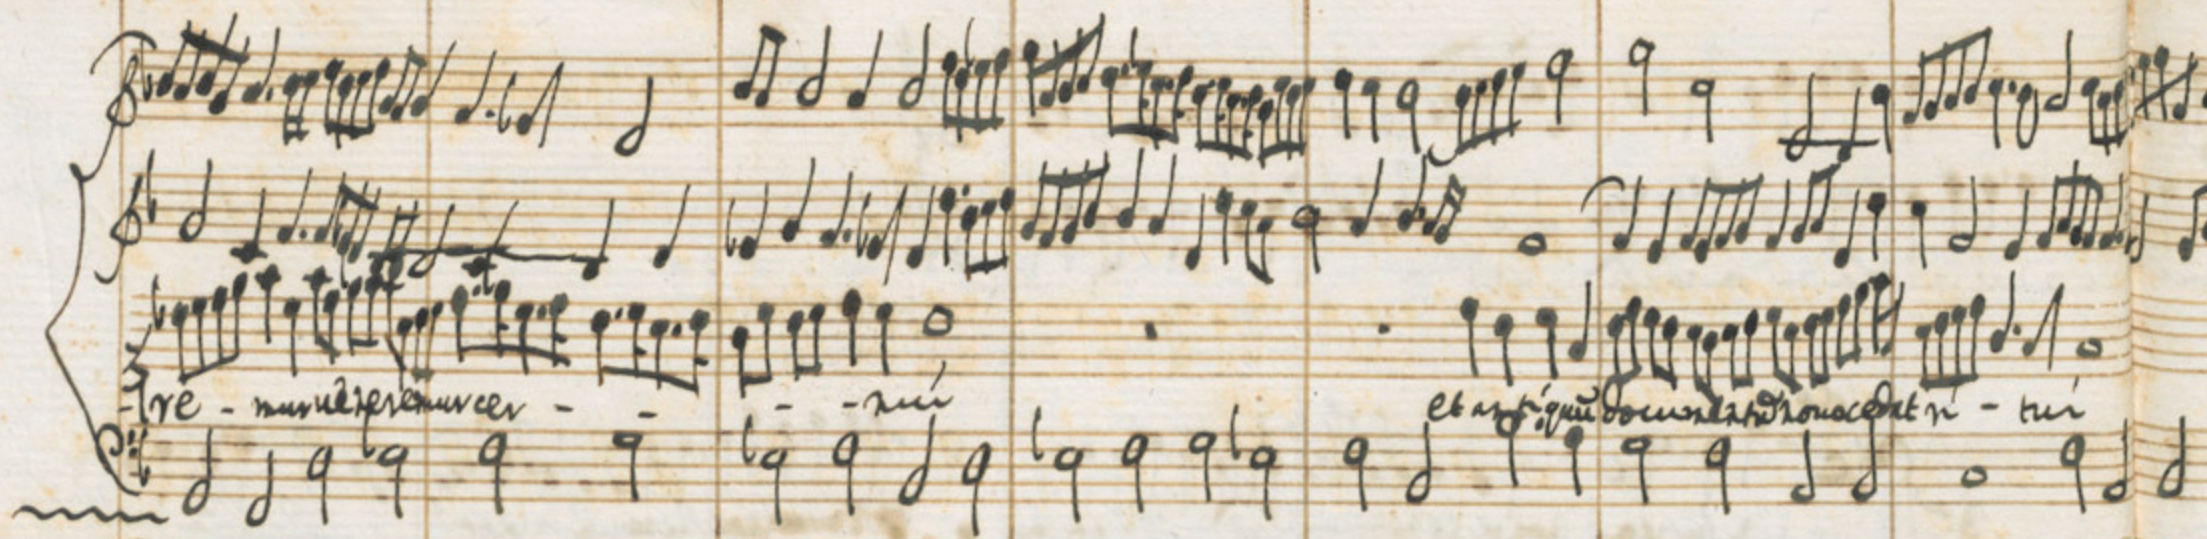 -re - mur veneremur cer - - - - nui et antiquũ documentũ novo cedat ri - tui